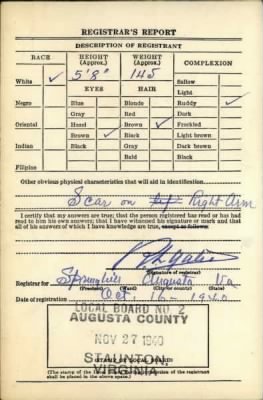 REGISTRAR'S REPORT
DESCRIPTION OF REGISTRANT
RACE HEIGHT (Approx.) WEIGHT (Approx.) COMPLEXION
White ✓ 5'8" 145 Sallow
EYES HAIR Light
Negro Blue Blonde Ruddy ✓
Gray Red Dark
Oriental Hazel Brown ✓ Freckled
Brown ✓ Black Light brown
Indian Black Gray Dark brown
Bald Black
Filipino
Other obvious physical characteristics that will aid in identification
Scar on Right Arm
I certify that my answers are true; that the person registered has read or has had
read to him his own answers; that I have witnessed his signature or mark and that
all of his answers of which I have knowledge are true, except as follows:
(Signature of registrar)
Registrar for Augusta Va
(Precinct) (Ward) (City or county) (State)
Date of registration Oct. 16 - 1940
LOCAL BOARD NO. 2
AUGUSTA COUNTY
NOV 27 1940
STAUNTON,
VIRGINIA
(STAMP OF LOCAL BOARD)
(The stamp of the of the registrant
shall be placed in the above space.)